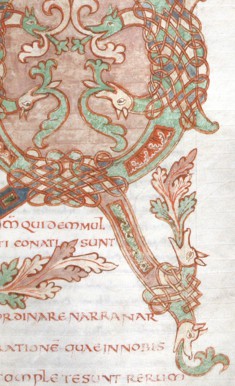 M̄ QUIDEMMUL
TI CONATI SUNT
ORDINARE NARRANAR
RATIONE QUAEINNOBIS
COMPLETESUNT RERUM